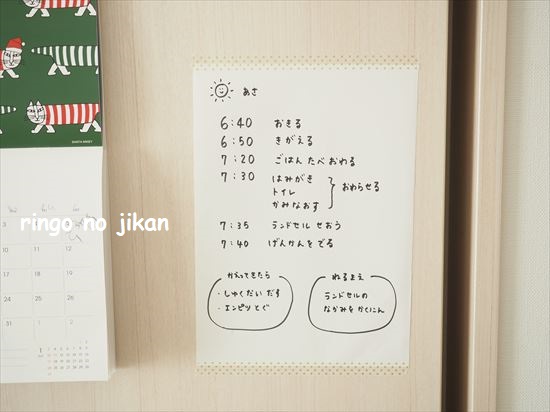 あさ
6:40 おきる
6:50 きがえる
7:20 ごはん たべ おわる
7:30 はみがき
トイレ
かみなおす
おわらせる
7:35 ランドセル せおう
7:40 げんかんを でる
かえってきたら
・しゅくだい だす
・エンピツ とぐ
ねるまえ
ランドセルの
なかみを かくにん
ringo no jikan
3
10
17
24
31
11
18
25
12
19
26
1